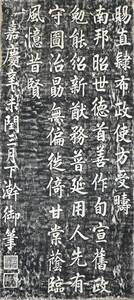 賜直隸布政使方受疇
南邦昭世德首善作旬宣舊政
勉能紹新猷務普延用人先有
守圖治勗無偏徙倚甘棠蔭臨
風憶昔賢
嘉慶辛未閏三月下澣御筆